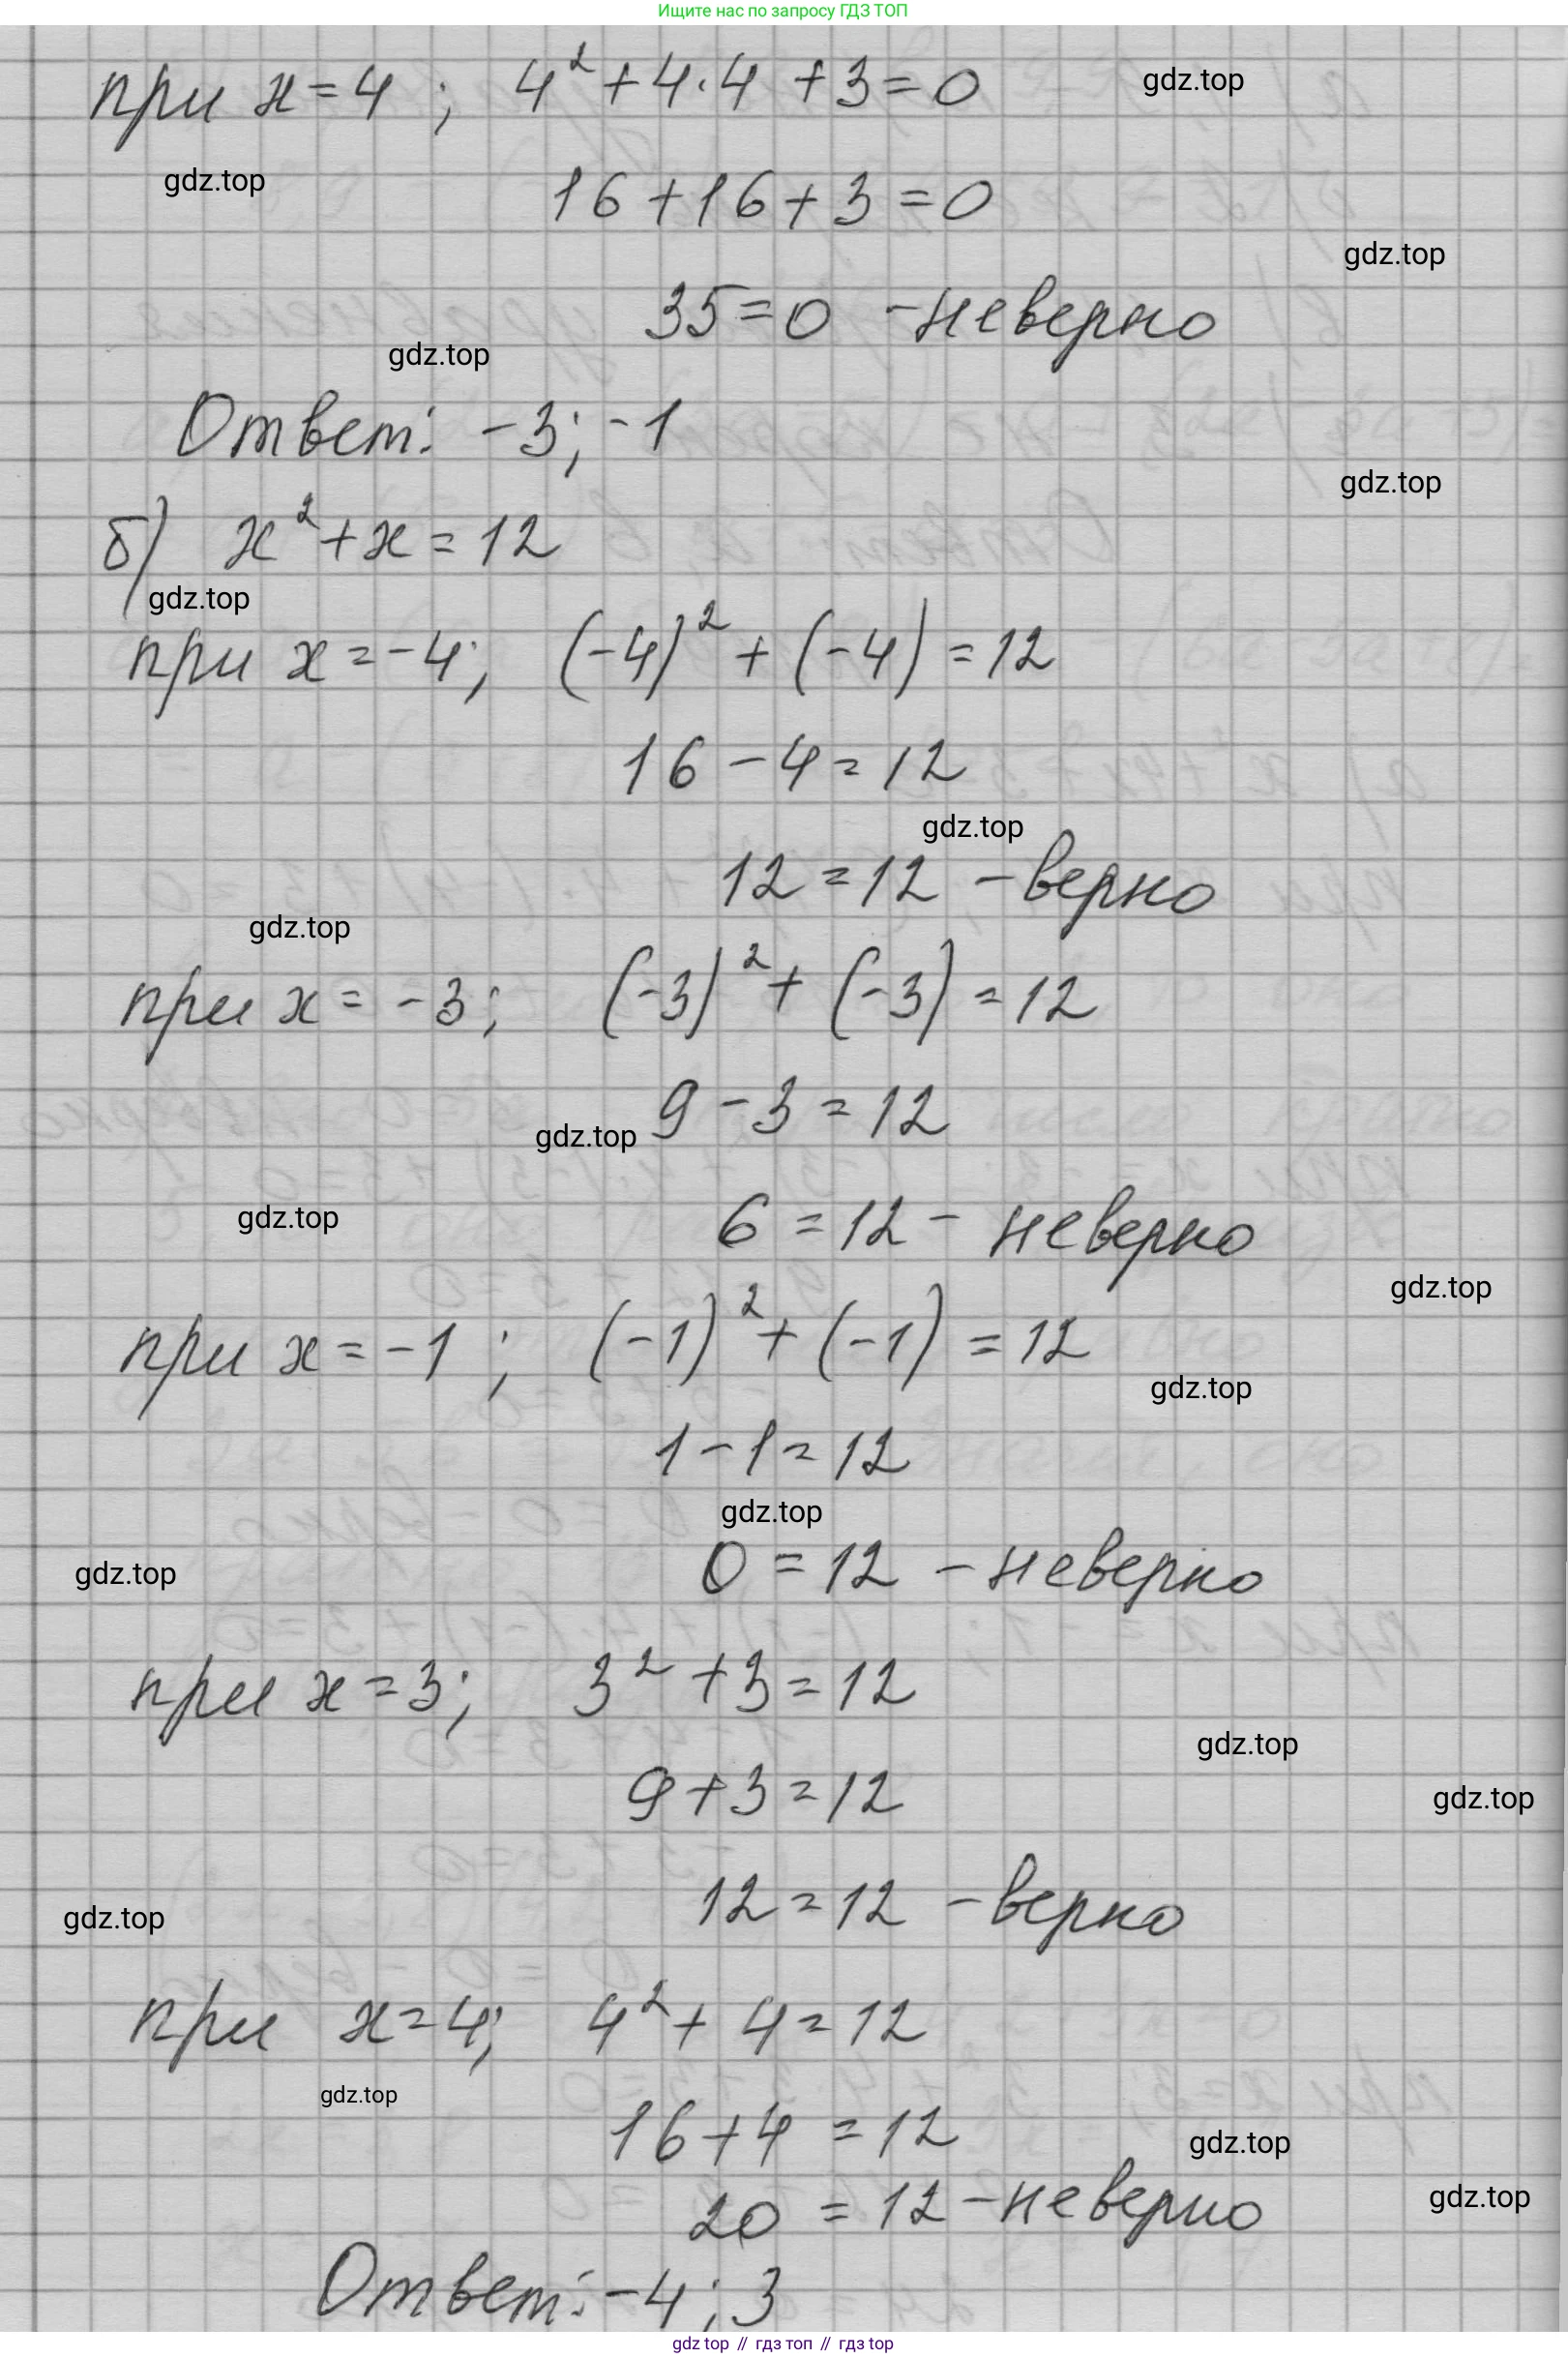 Ищите нас по запросу ГДЗ ТОП
при x=4; 4²+4·4+3=0
gdz.top
gdz.top
16+16+3=0
gdz.top
35=0 -неверно
gdz.top
Ответ: -3; -1
gdz.top
б) x²+x=12
gdz.top
при x=-4; (-4)²+(-4)=12
16-4=12
gdz.top
12=12 -верно
gdz.top
при x=-3; (-3)²+(-3)=12
9-3=12
gdz.top
gdz.top
6=12- неверно
gdz.top
при x=-1; (-1)²+(-1)=12
gdz.top
1-1=12
gdz.top
0=12 -неверно
gdz.top
при x=3; 3²+3=12
gdz.top
9+3=12
gdz.top
12=12 -верно
gdz.top
при x=4; 4²+4=12
gdz.top
16+4=12
gdz.top
20=12-неверно
gdz.top
Ответ: -4; 3
gdz top // гдз топ // гдз top